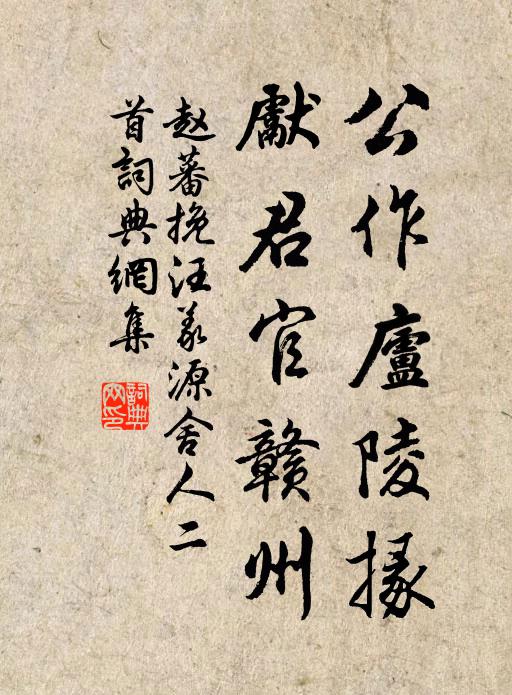 公作廬陵掾
獻君官赣州
赵蕃挽汪羕源舍人二
首詞典網集
詞典網印